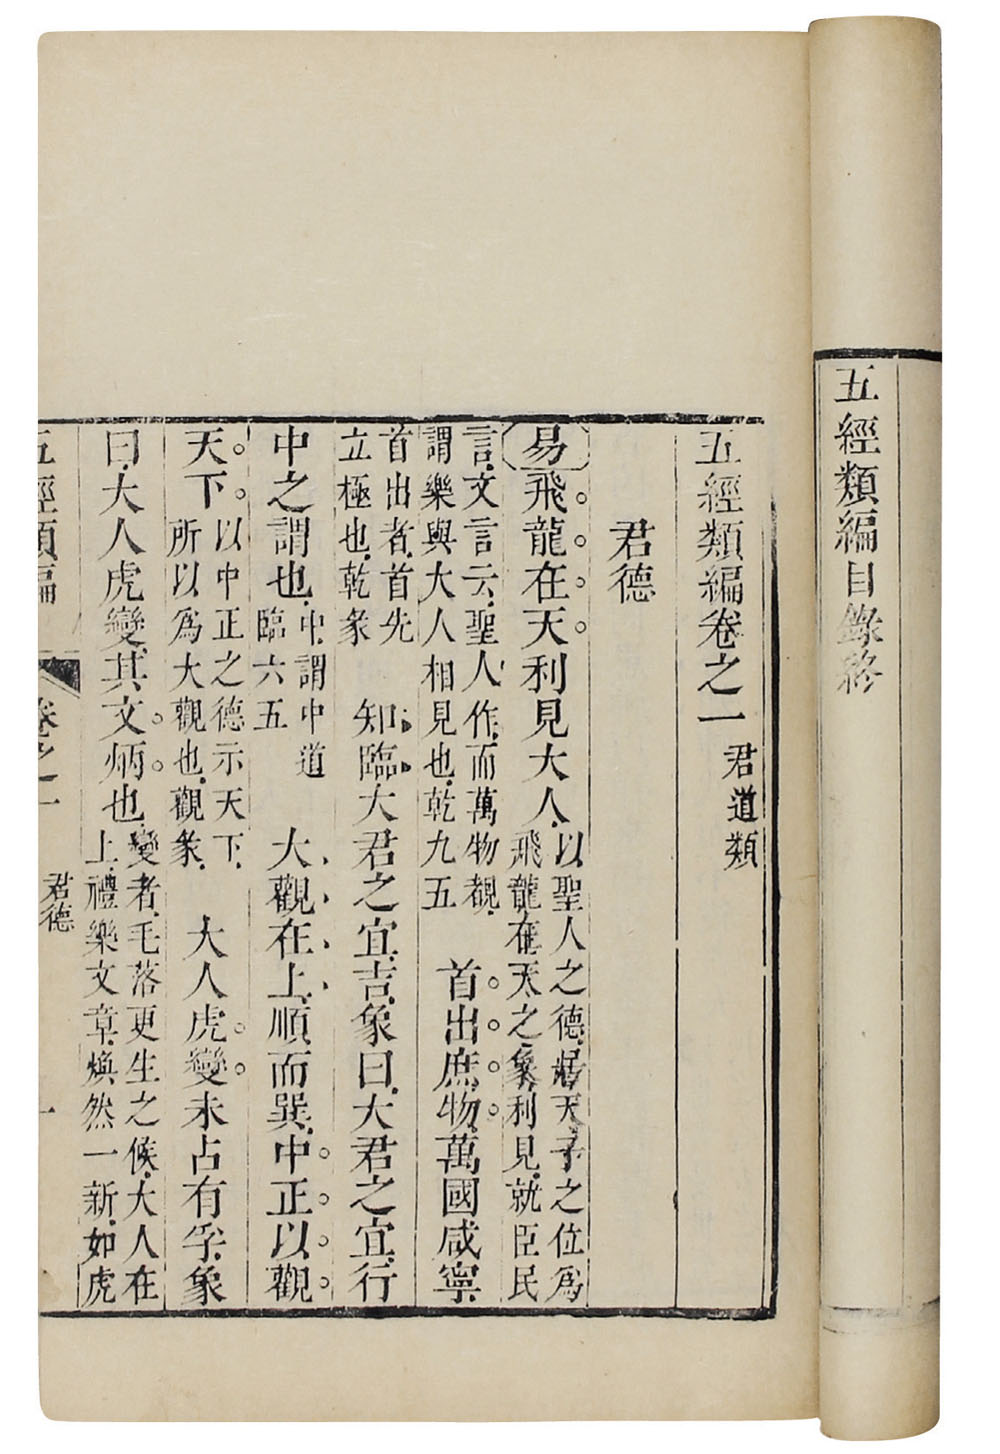 五經類編目錄終
五經類編卷之一 君道類
君德
易 飛龍在天利見大人 以聖人之德居天子之位爲
飛龍在天之象利見就臣民
言文言云聖人作而萬物覩 首出庶物萬國咸寧
謂樂與大人相見也乾九五
首出者首先
立極也乾彖 知臨大君之宜吉象曰大君之宜行
中之謂也 中謂中道
臨六五 大觀在上順而巽中正以觀
天下 以中正之德示天下
所以爲大觀也觀彖 大人虎變未占有孚象
曰大人虎變其文炳也 變者毛落更生之候大人在
上禮樂文章煥然一新如虎
五經類編 卷之一 君德 一